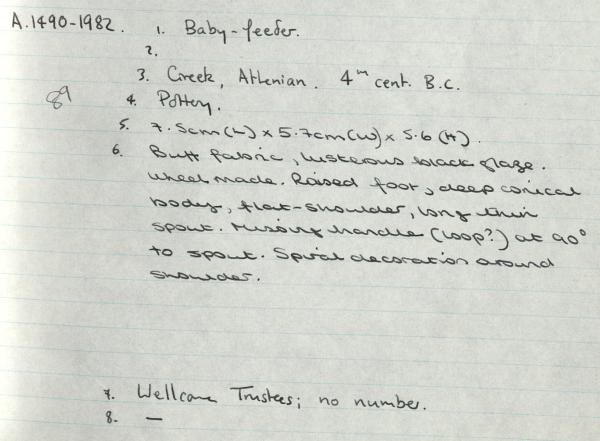 A.1490-1982. 1. Baby-feeder.
2.
3. Greek, Athenian. 4th cent. B.C.
89
4. Pottery.
5. 7.5cm (L) x 5.7cm (W) x 5.6 (H).
6. Buff fabric, lusterous black glaze.
Wheel made. Raised foot, deep conical
body, flat-shoulder, long thin
spout. Missing handle (loop?) at 90°
to spout. Spiral decoration around
shoulder.
7. Wellcome Trustees; no number.
8. —